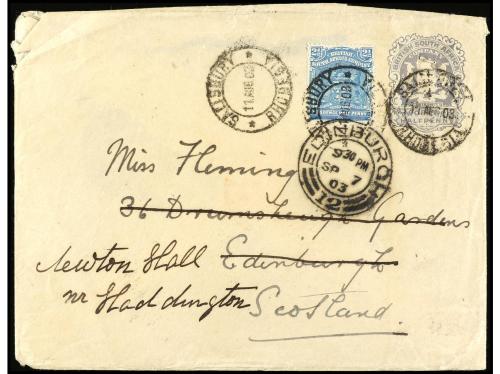 SALISBURY
11 AUG 03
RHODESIA
BRITISH
SOUTH AFRICA COMPANY
BRITISH SOUTH AFRICA
COMPANY
HALFPENNY
EDINBURGH
9 30 PM
SP 7
03
12
Miss Fleming
36 Drumsheugh Gardens
Edinburgh
Newton Hall
nr Haddington
Scotland.